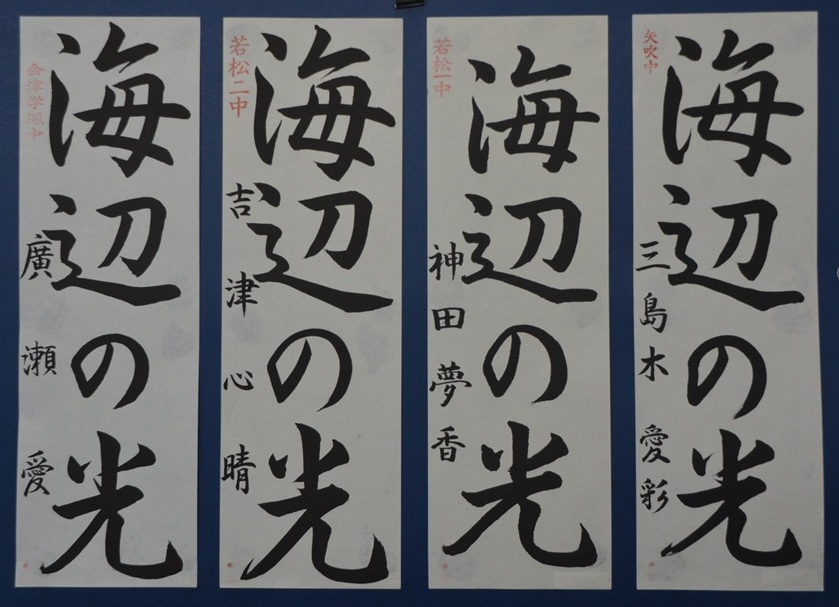 矢吹中
海辺の光
三島木愛彩
若松一中
海辺の光
神田夢香
若松二中
海辺の光
吉津心晴
会津学鳳中
海辺の光
廣瀬愛